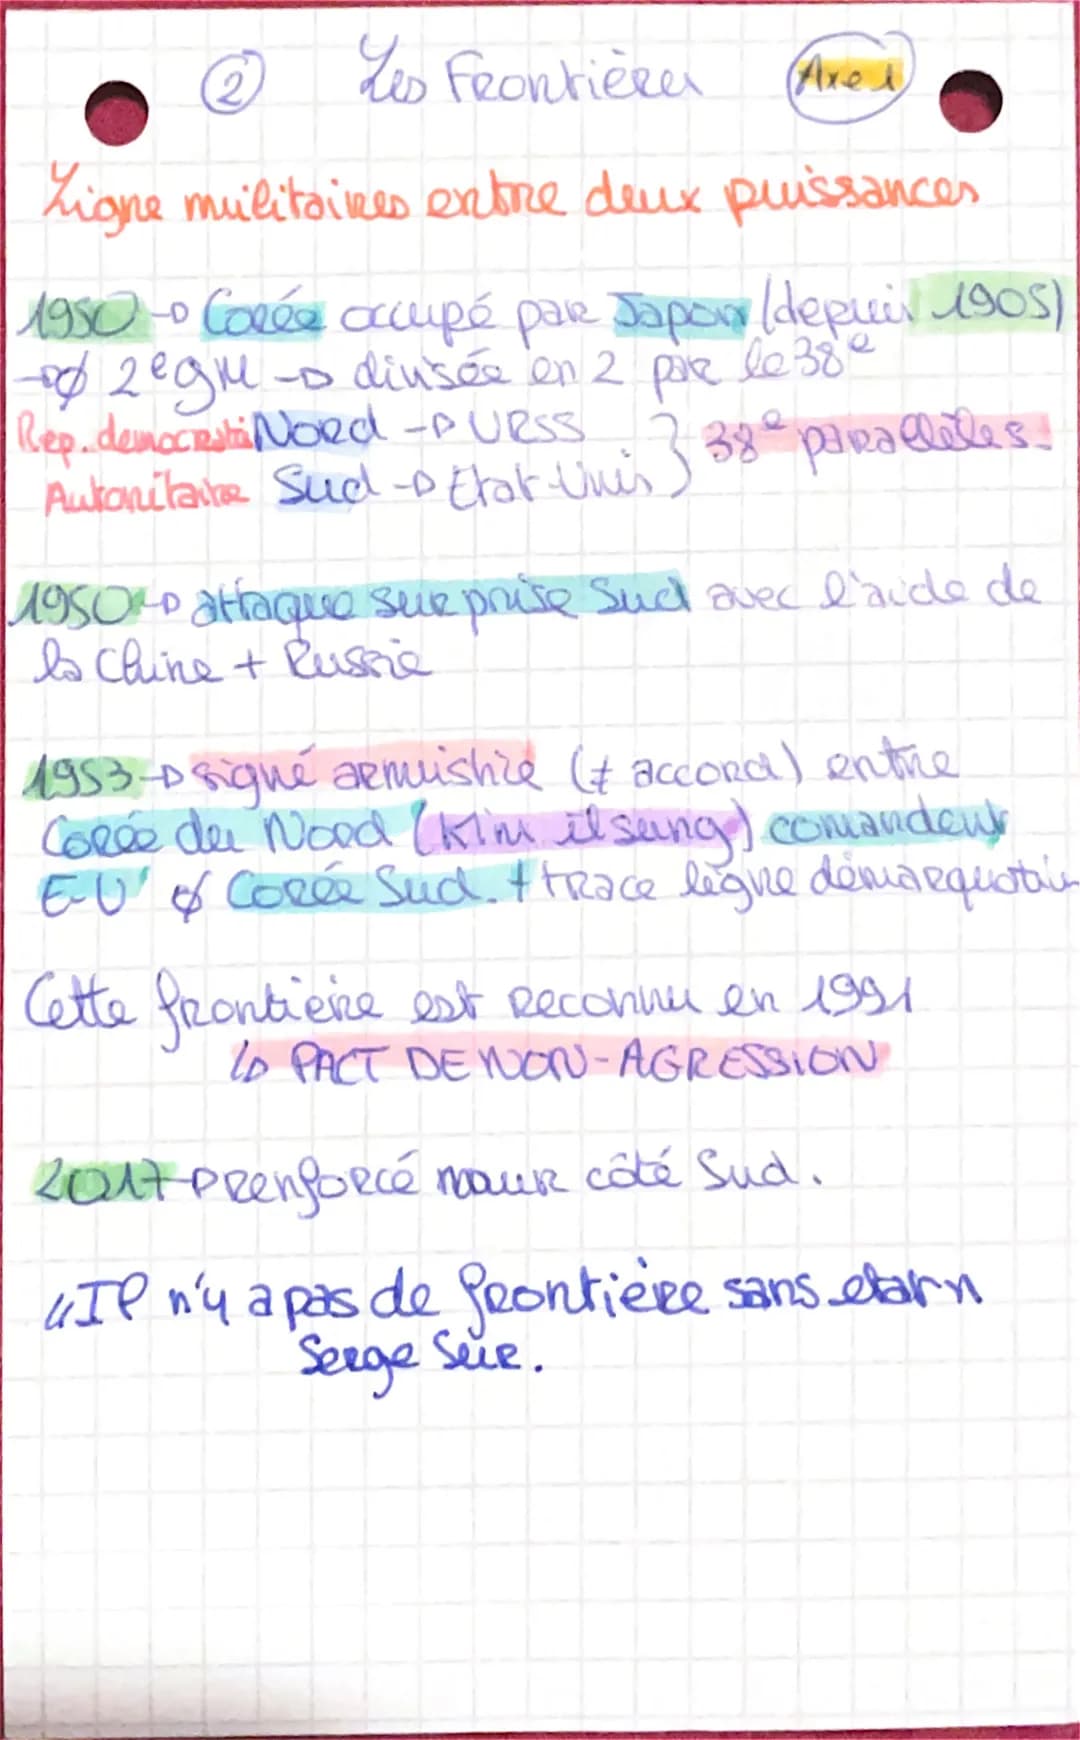 ② Les Frontières Axe 1
Ligne militaires entre deux puissances
1950 → Corée occupé par Japon (depuis 1905)
→ø 2e gm → divisée en 2 par le 38e
Rep. democrati Nord → URSS } 38e parallèles.
Autoritaire Sud → Etat-Unis
1950 → attaque surprise Sud avec l'aide de
la Chine + Russie
1953 → signé armistie (≠ accord) entre
Corée du Nord (Kim il sung) comandeur
E-U ø Corée Sud. + trace ligne démarquation
Cette frontière est reconnu en 1991
↳ PACT DE NON-AGRESSION
2017 → renforcé maur côté Sud.
"Il n'y a pas de frontière sans etat"
Serge Sur.